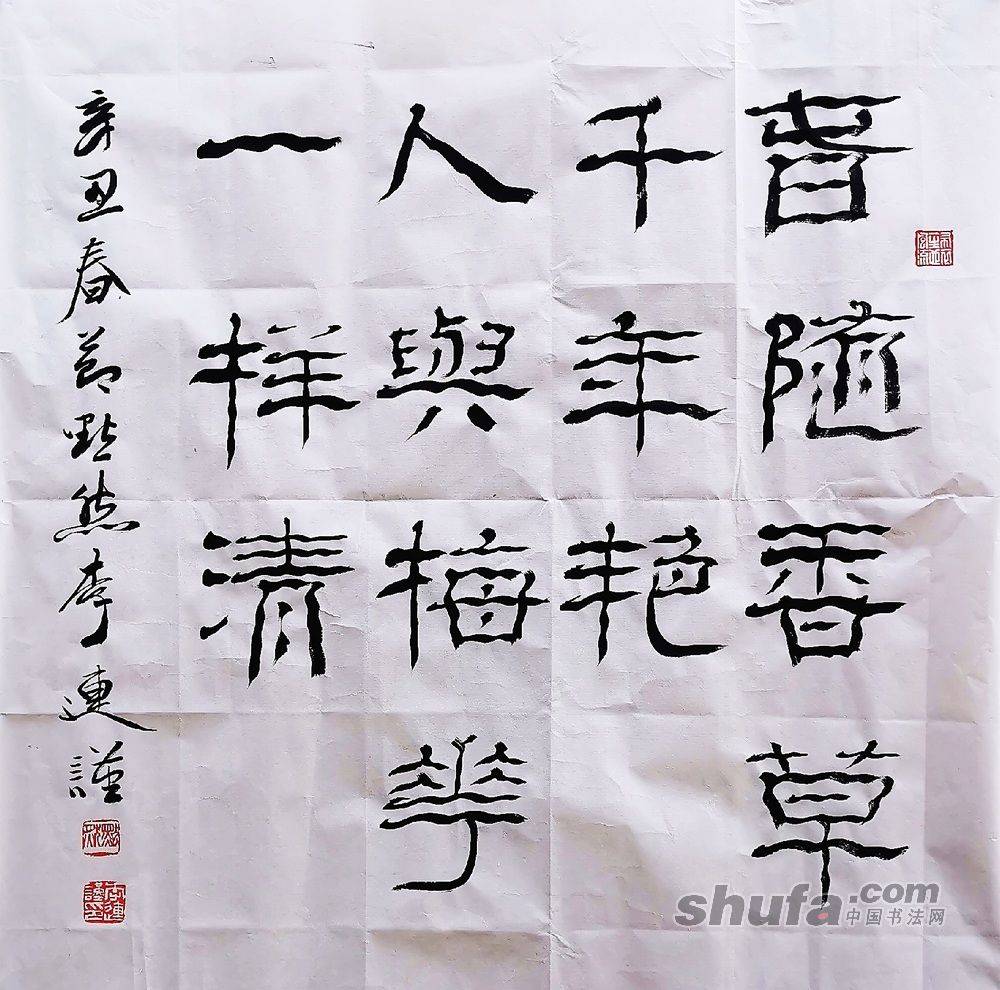 春隨香草
千年艳
人與梅華
一样清
辛丑春節然李連謹
shufa.com
中国书法网